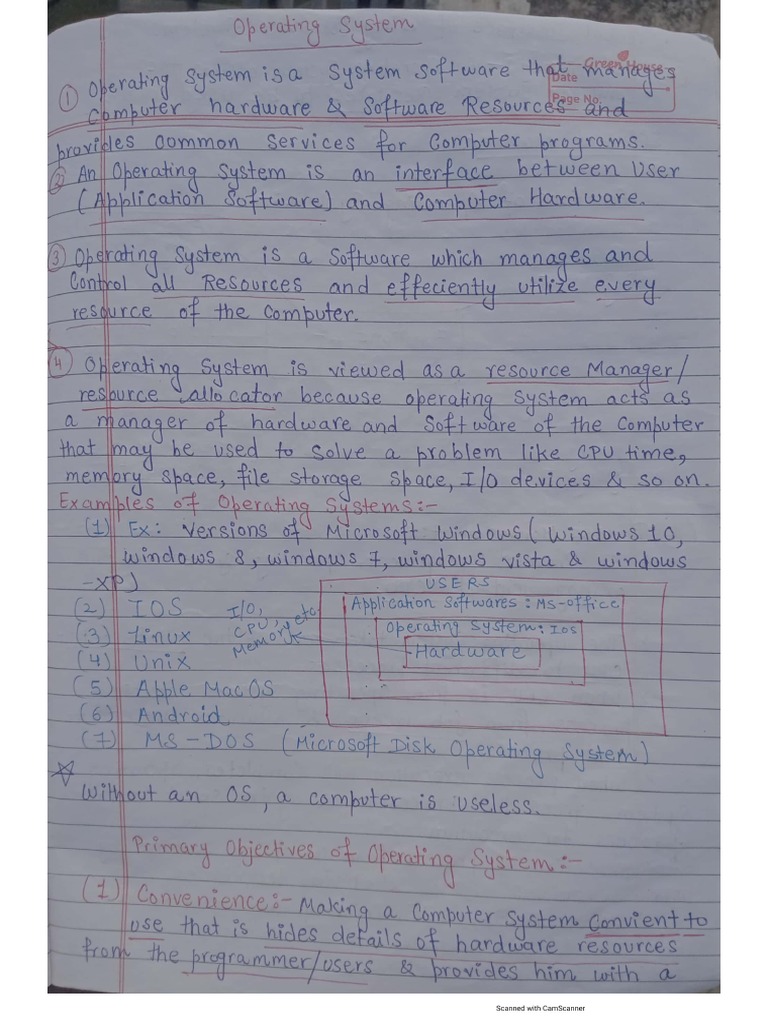 Operating System
Green House
Date
Page No.
① Operating System is a System Software that manages
Computer hardware & Software Resources and
provides common services for Computer programs.
② An Operating System is an interface between User
(Application Software) and Computer Hardware.
③ Operating System is a Software which manages and
Control all Resources and effeciently utilize every
resource of the Computer.
④ Operating System is viewed as a resource Manager/
resource allocator because operating System acts as
a manager of hardware and Software of the Computer
that may be used to solve a problem like CPU time,
memory space, file storage space, I/O devices & so on.
Examples of Operating Systems:-
(1) Ex: Versions of Microsoft Windows (Windows 10,
windows 8, windows 7, windows vista & windows
-XP)
(2) IOS
(3) Linux
(4) Unix
(5) Apple MacOS
(6) Android
(7) MS-DOS (Microsoft Disk Operating System)
I/O,
CPU, etc
Memory
USERS
Application Softwares : MS-office
Operating System: IOS
Hardware
☆ Without an OS, a computer is useless.
Primary Objectives of Operating System:-
(1) Convenience:- Making a Computer System Convient to
use that is hides details of hardware resources
from the programmer/users & provides him with a
Scanned with CamScanner